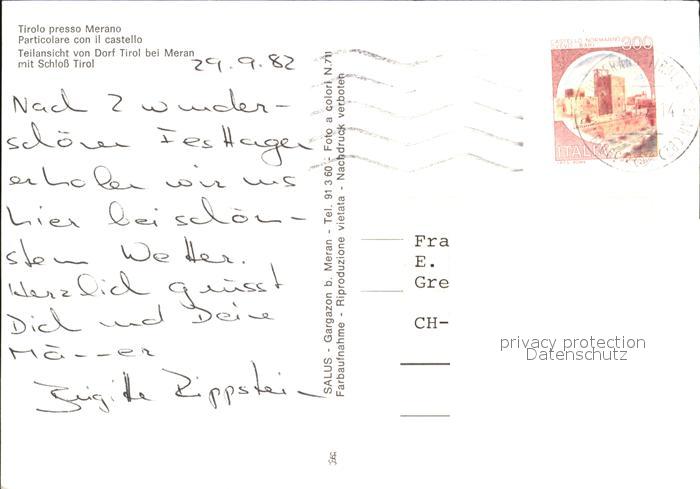 Tirolo presso Merano
Particolare con il castello
Teilansicht von Dorf Tirol bei Meran
mit Schloß Tirol
29.9.82
Nach 2 wunder-
schönen Festtagen
erholen wir uns
hier bei schön-
stem Wetter.
Herzlich grüsst
Dich und Deine
Mä--er
Brigitte Rippstein
SALUS - Gargazon b. Meran - Tel. 91 3 60 - Foto a colori N.711
Farbaufnahme - Riproduzione vietata - Nachdruck verboten
CASTELLO NORMANNO
SVEVO BARI
300
ITALIA
Fra
E.
Gre
CH-
privacy protection
Datenschutz